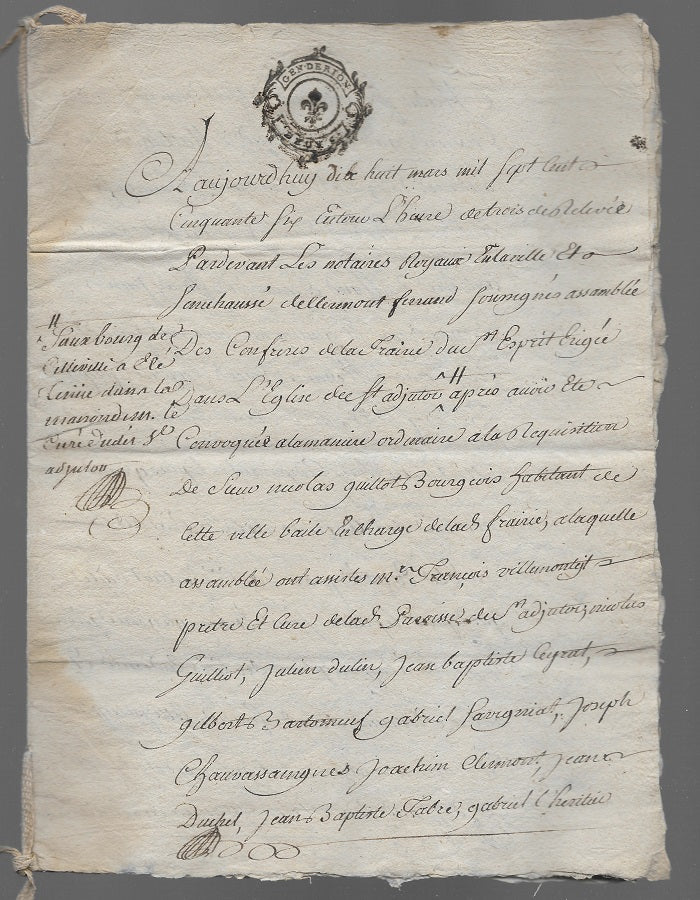 GEN. DE RION
DEUX S.
Aujourdhuy dix huit mars mil sept cent
Cinquante six Entour L'heure de trois de Relevée
Pardevant Les notaires Royaux En laville Et
Senechaussé de Clermont ferrand soussignés assamblée
Des Confreres de la frairie du St Esprit Erigée
Dans L'Eglise de St adjutor # apres avoir Ete
Convoquée a la maniere ordinaire a la Requisition
De Sieur nicolas guillot Bourgeois habitant de
Cette ville baile En charge de lad. frairie, a laquelle
assamblée ont assistes mre François villemontejt
pretre Et Cure de lad. Paroisse de St adjutor, nicolas
Guilliot, Julien dulin, Jean baptiste Ceyrat,
gilbert Bartomeuf gabriel savigniat, Joseph
Chauvassaignes Joachim Clermont, Jean
Duchet, Jean Baptiste Fabre, gabriel L'heritier
#
fauxbourg de
Cette ville a Ete
tenüe dans la
maison du sr. le
Curé dudit St
adjutor